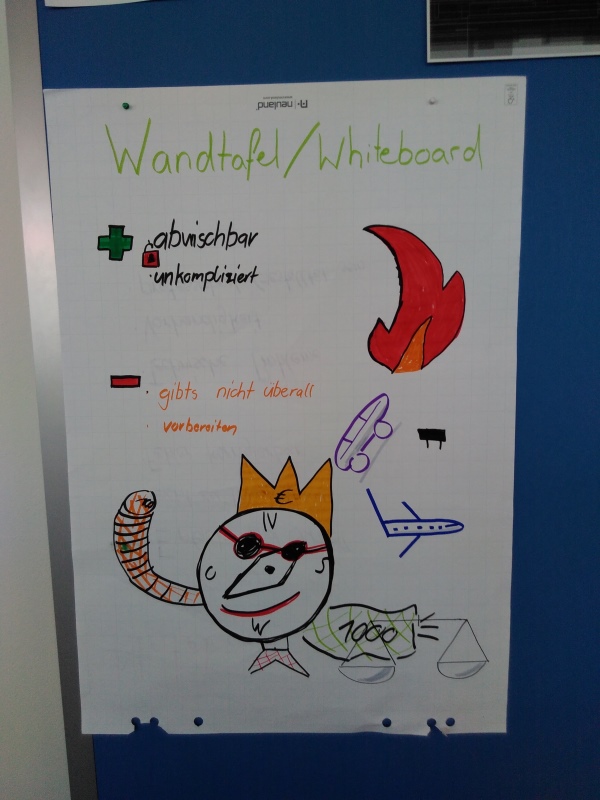 neuland
Wandtafel/Whiteboard
· abwischbar
· unkompliziert
· gibts nicht überall
· vorbereiten
€
IV
W
1000